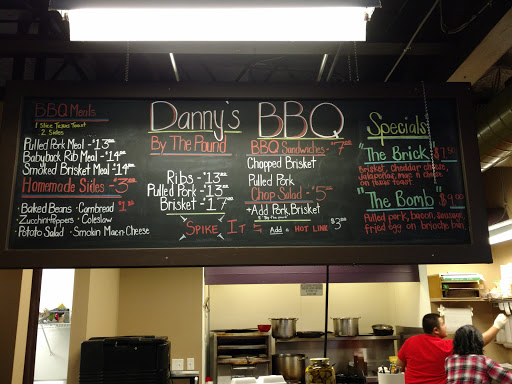 BBQ Meats
1 Slice Texas Toast
2 Sides
Pulled Pork Meal - $13.00
Babyback Rib Meal - $14.00
Smoked Brisket Meal $14.00
Homemade Sides - $3.00
• Baked Beans • Cornbread $1.50
• Zucchini+Peppers • Coleslaw
• Potato Salad • Smokin Mac n Cheese
Danny's BBQ
By The Pound
Ribs - $13.00
Pulled Pork - $13.00
Brisket - $17.00
BBQ Sandwiches - $7.00
Chopped Brisket
Pulled Pork
Chop Salad - $5.00
+ Add Pork, Brisket
SPIKE IT = Add a HOT LINK $3.00
Specials
"The Brick" $7.50
Brisket, cheddar cheese,
on texas toast
"The Bomb" $9.00
Pulled pork, bacon, sausage,
fried egg on brioche bun